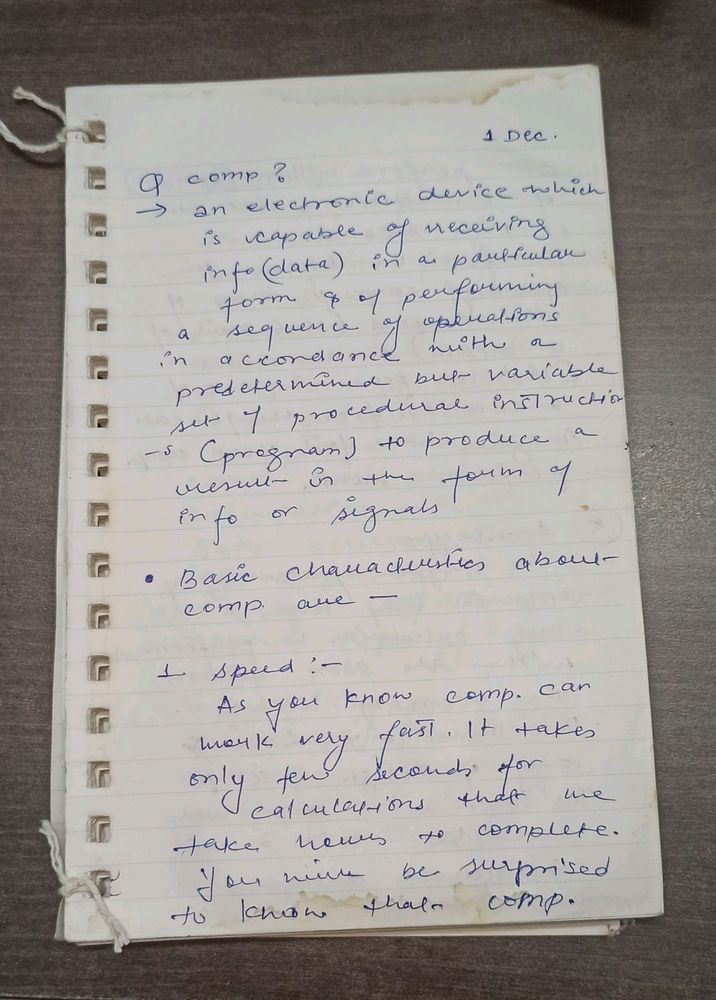 1 Dec.
Q comp?
→ an electronic device which
is capable of receiving
info (data) in a particular
form & of performing
a sequence of operations
in accordance with a
predetermined but variable
set of procedural instruction
-s (program) to produce a
result in the form of
info or signals
• Basic characteristics about
comp. are —
1 speed :-
As you know comp. can
work very fast. It takes
only few seconds for
calculations that we
take hours to complete.
You will be surprised
to know that comp.